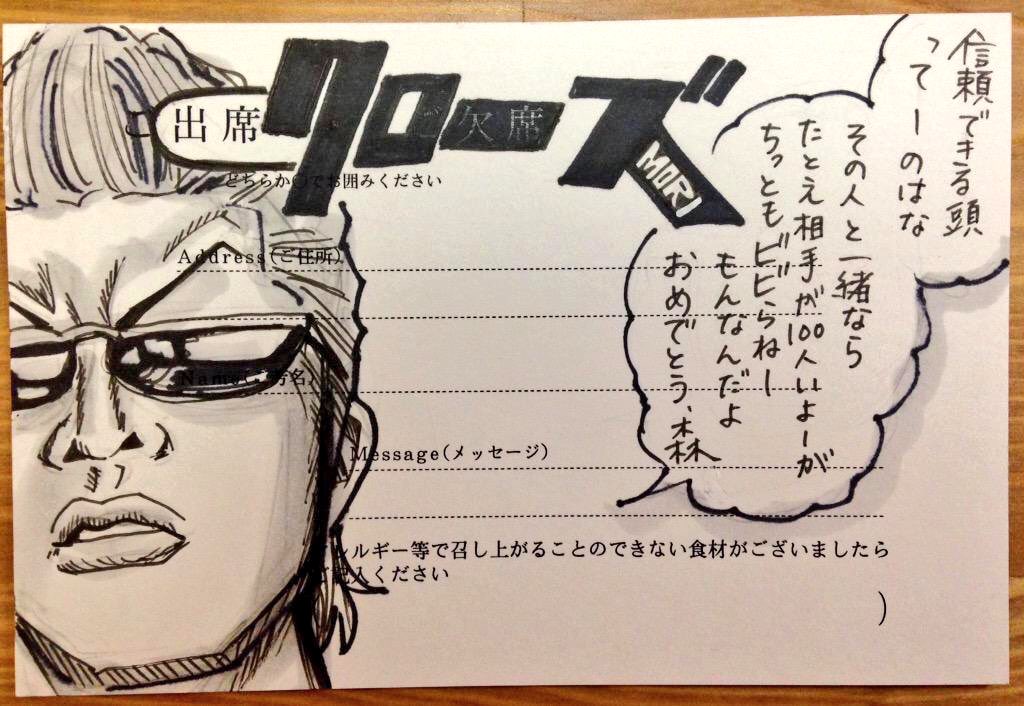 クローズ
MORI
出席
ご欠席
どちらか○でお囲みください
信頼できる頭
ってーのはな
その人と一緒なら
たとえ相手が100人いよーが
ちっともビビらねー
もんなんだよ
おめでとう、森
Address(ご住所)
Name(ご芳名)
Message(メッセージ)
アレルギー等で召し上がることのできない食材がございましたら
ご記入ください
)